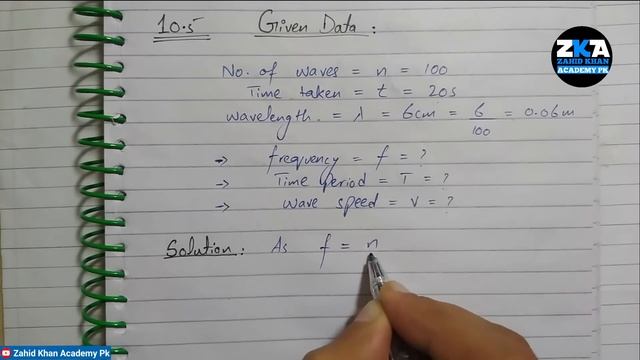 10.5 Given Data :
ZKA
ZAHID KHAN
ACADEMY PK
No. of waves = n = 100
Time taken = t = 20s
wavelength. = λ = 6cm = 6/100 = 0.06m
→ frequency = f = ?
→ Time period = T = ?
→ wave speed = v = ?
Solution : As f = n
Zahid Khan Academy Pk